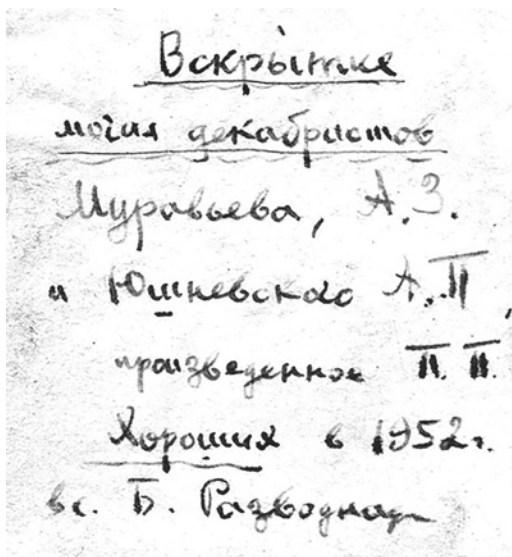 Вскрытие
могил декабристов
Муравьева, А.З.
и Юшневского А.П.,
произведенное П.П.
Хороших в 1952 г.
в с. Б. Разводная